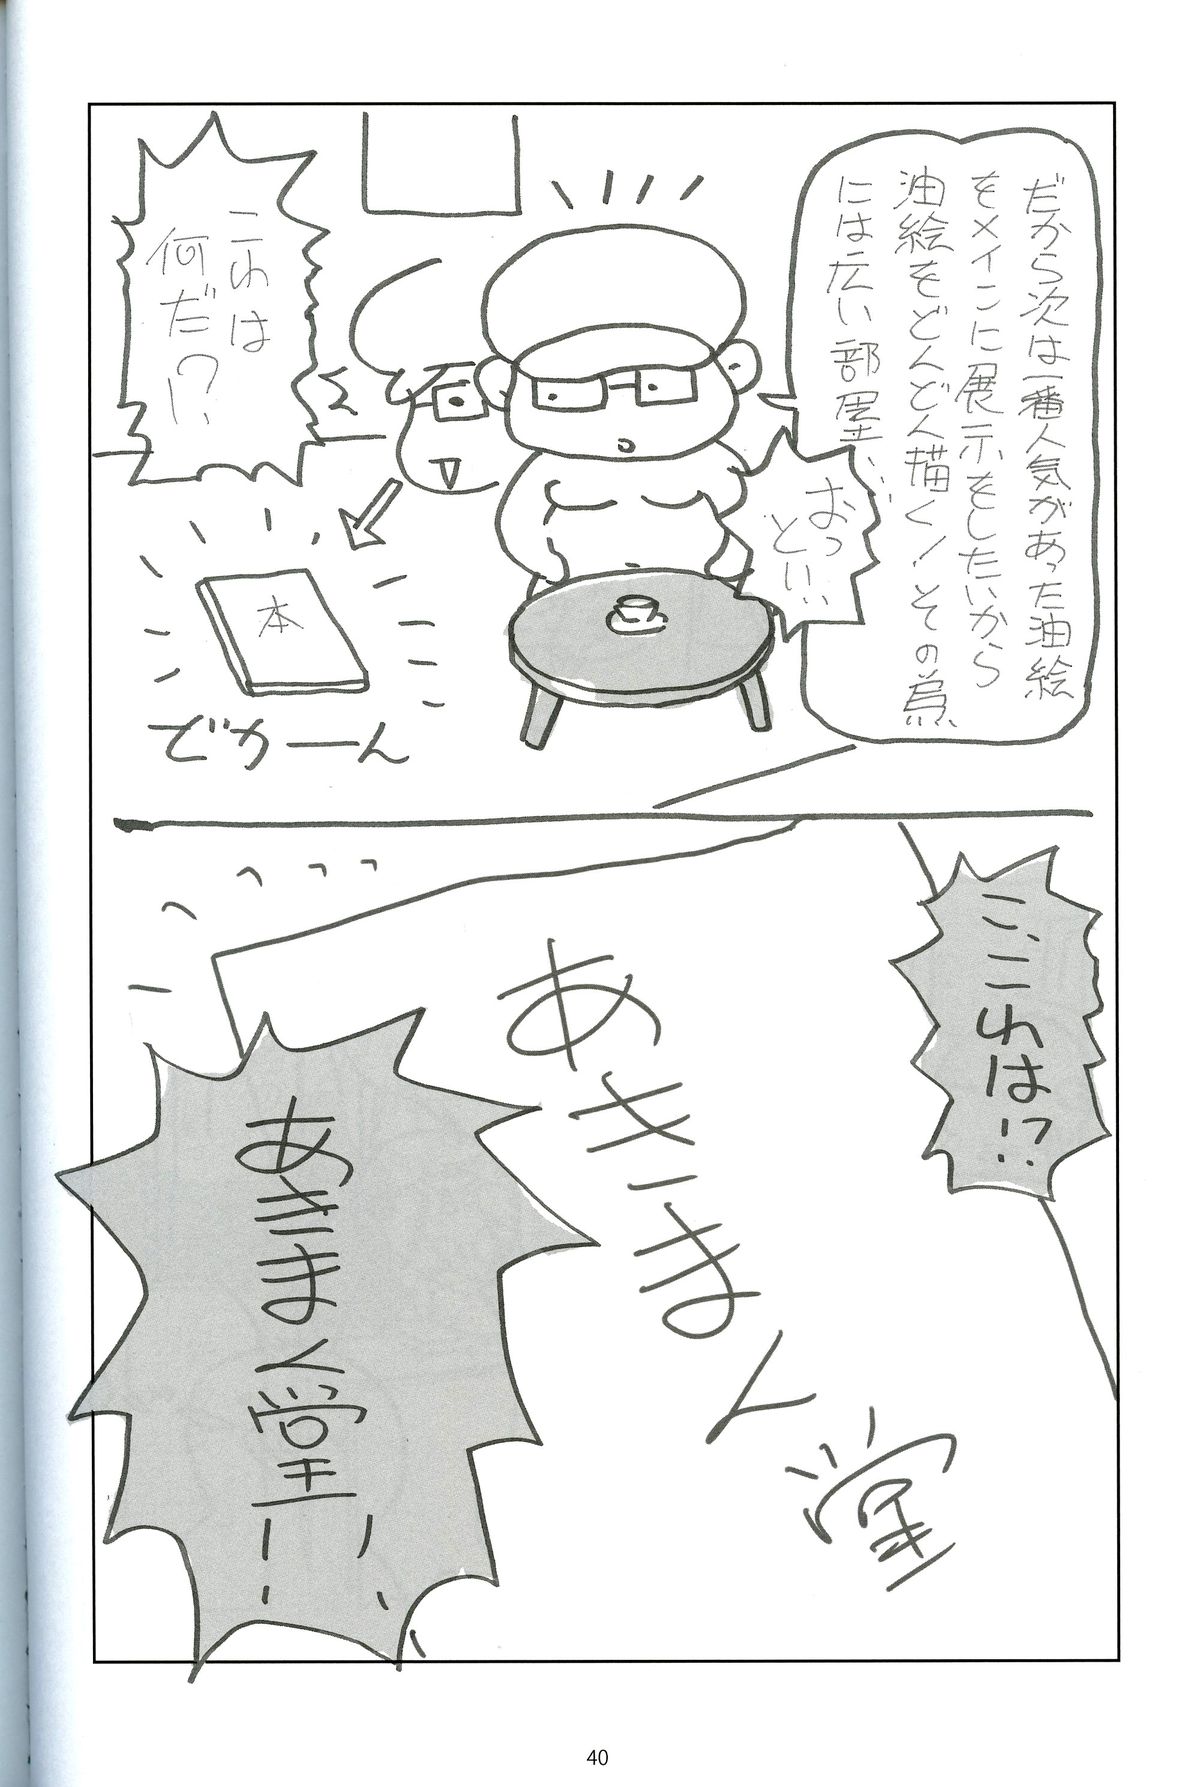 だから次は一番人気があった油絵
をメインに展示をしたいから
油絵をどんどん描く！その為
には広い部屋……
おっ
とい…
これは
何だ!?
本
でかーん
こ、これは!?
あきまん堂
あきまん堂!!
40